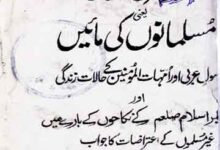 یعنی
مُسلمانوں کی مائیں
رسول عربی اور اُمہات المؤمنین کے حالات زندگی
اور
اسلام صلعم کے نکاحوں کے بارے میں
غیر مسلموں کے اعتراضات کا جواب